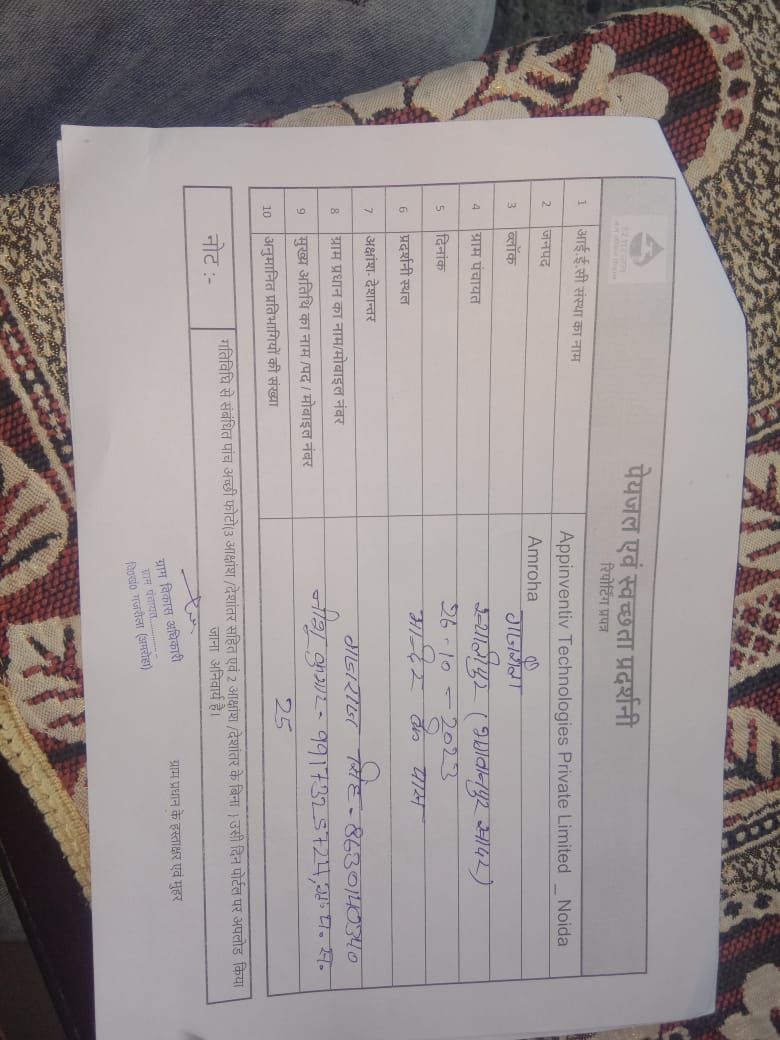 पेयजल एवं स्वच्छता प्रदर्शनी
रिपोर्टिंग प्रपत्र
1 आई.ई.सी संस्था का नाम Appinventiv Technologies Private Limited _ Noida
2 जनपद Amroha
3 ब्लॉक गजरौला
4 ग्राम पंचायत
5 दिनांक 26-10-2023
6 प्रदर्शनी स्थल मन्दिर के पास
7 अक्षांश- देशान्तर
8 ग्राम प्रधान का नाम/मोबाइल नंबर सिंह - 8630140340
9 मुख्य अतिथि का नाम /पद / मोबाइल नंबर कुमार -
10 अनुमानित प्रतिभागियों की संख्या 25
नोट :- गतिविधि से संबंधित पांच अच्छी फोटो(3 आक्षांश /देशांतर सहित एवं 2 आक्षांश /देशांतर के बिना ) उसी दिन पोर्टल पर अपलोड किया
जाना अनिवार्य है।
ग्राम विकास अधिकारी
ग्राम पंचायत
वि0ख0 गजरौला (अमरोहा)
ग्राम प्रधान के हस्ताक्षर एवं मुहर